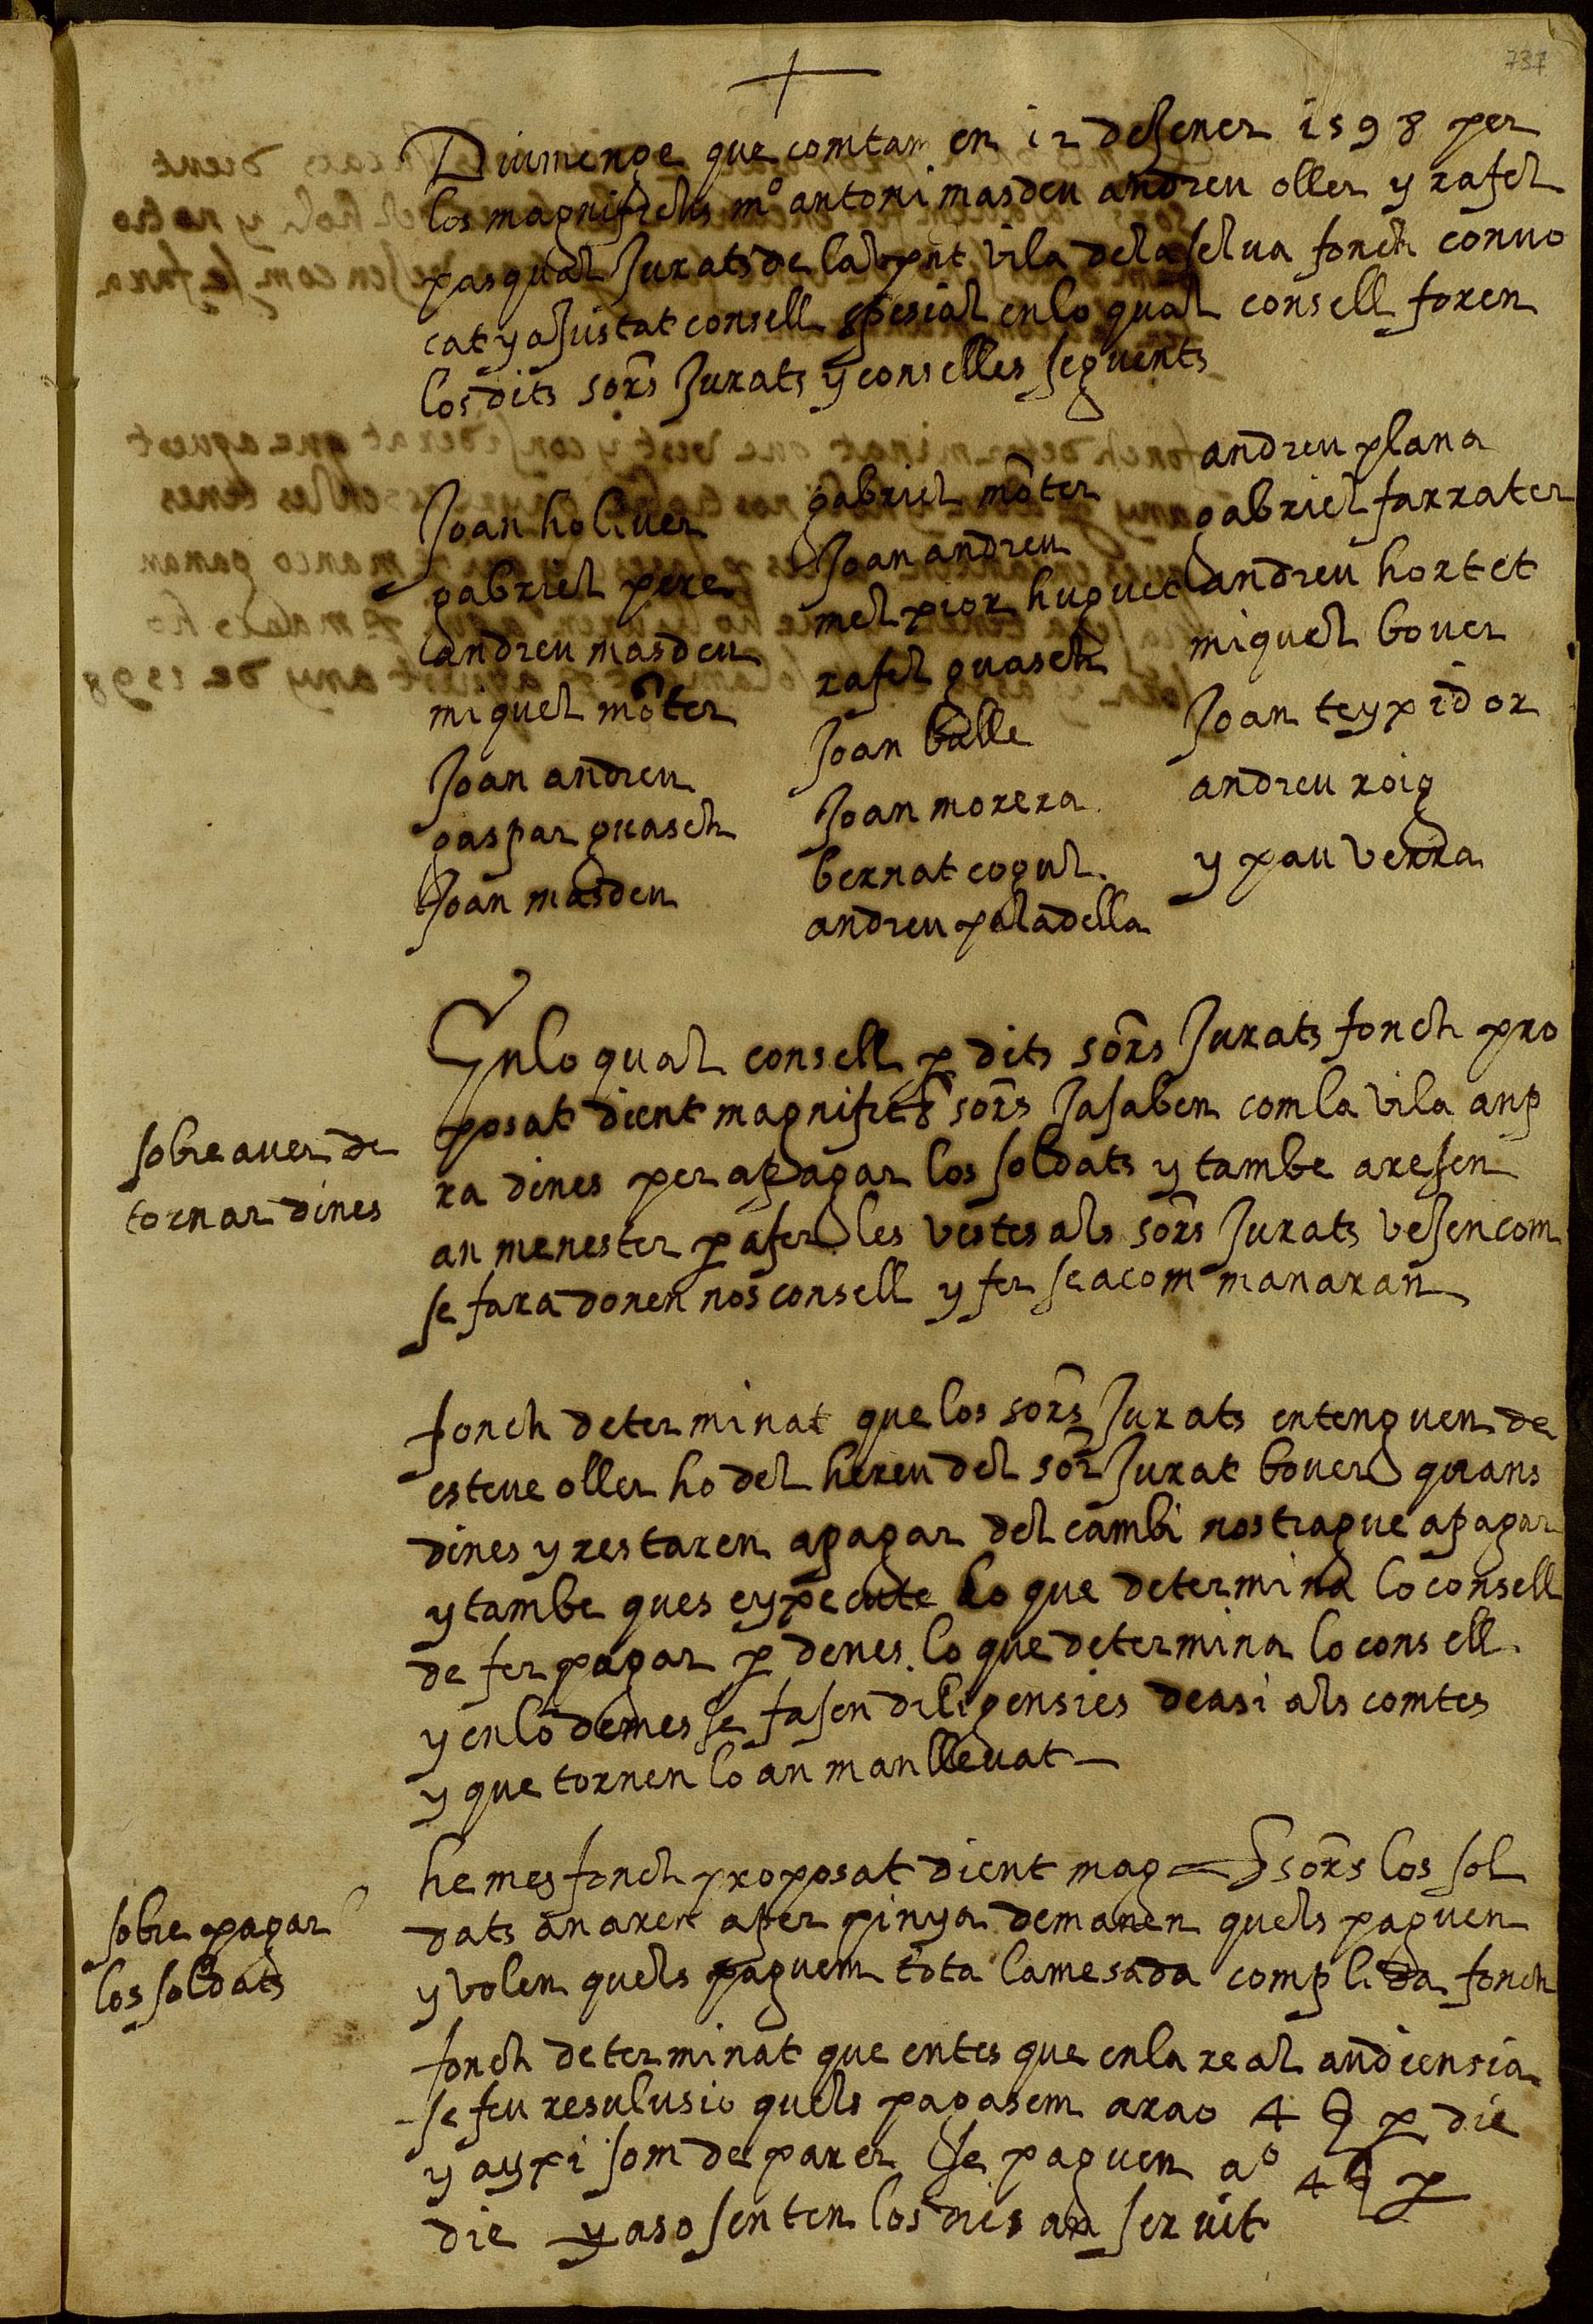 737
Diumenge que comtam en 12 de Jener 1598 per
los magnifichs mº antoni masdeu andreu oller y rafel
pasqual Jurats de la pnt vila de la selva fonch convo
cat y aJustat consell spesial en lo qual consell foren
los dits sors Jurats y conselles seguents
Joan holiver
gabriel pere
andreu masdeu
miquel moter
Joan andreu
gaspar guasch
Joan masdeu
gabriel moter
Joan andreu
melpior huguet
rafel guasch
Joan balle
Joan morera
bernat cogul
andreu paladella
andreu plana
gabriel farrater
andreu hortet
miquel bover
Joan teypidor
andreu roig
y pau verra
sobre aver de
tornar dines
En lo qual consell p dits sors Jurats fonch pro
posat dient magnifichs sors Ja saben com la vila anp
ra dines per apagar los soldats y tambe aresen
an menester p afer les vestes als sors Jurats veJen com
se fara donen nos consell y fer sea com manaran
fonch determinat que los sors Jurats entenguen de
esteve oller ho del hereu del sor Jurat bover quans
dines y restaren apagar del cambi nos trague apagar
y tambe ques eypecute lo que determina lo consell
de fer pagar p denes lo que determina lo consell
y en lo demes se fasen diligensies de asi als comtes
y que tornen lo an manllevat
sobre pagar
los soldats
he mes fonch proposat dient mag sors los sol
dats anaren afer pinya demanen quels paguen
y volen quels paguem tota la mesada complida fonch
fonch determinat que entes que en la real audiensia
se feu resulusio quels pagasem arao 4 p die
y aypi som de parer se paguen aº 4 p
die y aso senten los dies an servit